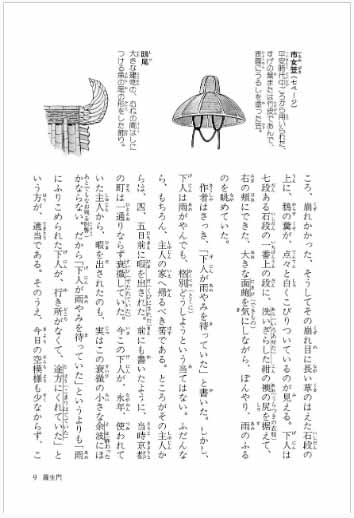 市女笠(七ページ)
平安時代中ごろから用いられた、
すげの葉または竹皮であんで、
表面にうるしを塗った笠。
鴟尾
大きな建物の、むねの両はしに
つける魚の尾の形をした飾り。
ころ、崩れかかった、そうしてその崩れ目に長い草のはえた石段の
上に、鴉の糞が、点々と白くこびりついているのが見える。下人は
七段ある石段の一番上の段に、洗いざらした紺の襖の尻を据えて、
右の頬にできた、大きな面皰を気にしながら、ぼんやり、雨のふる
のを眺めていた。
作者はさっき、「下人が雨やみを待っていた」と書いた。しかし、
下人は雨がやんでも、格別どうしようという当てはない。ふだんな
らもちろん、主人の家へ帰るべき筈である。ところがその主人か
らは、四、五日前に暇を出された。前にも書いたように、当時京都
の町は一通りならず衰微していた。今この下人が、永年、使われて
いた主人から、暇を出されたのも、実はこの衰微の小さな余波にほ
かならない。だから「下人が雨やみを待っていた」というよりも「雨
にふりこめられた下人が、行き所がなくて、途方にくれていた」と
いう方が、適当である。そのうえ、今日の空模様も少なからず、こ
9 羅生門